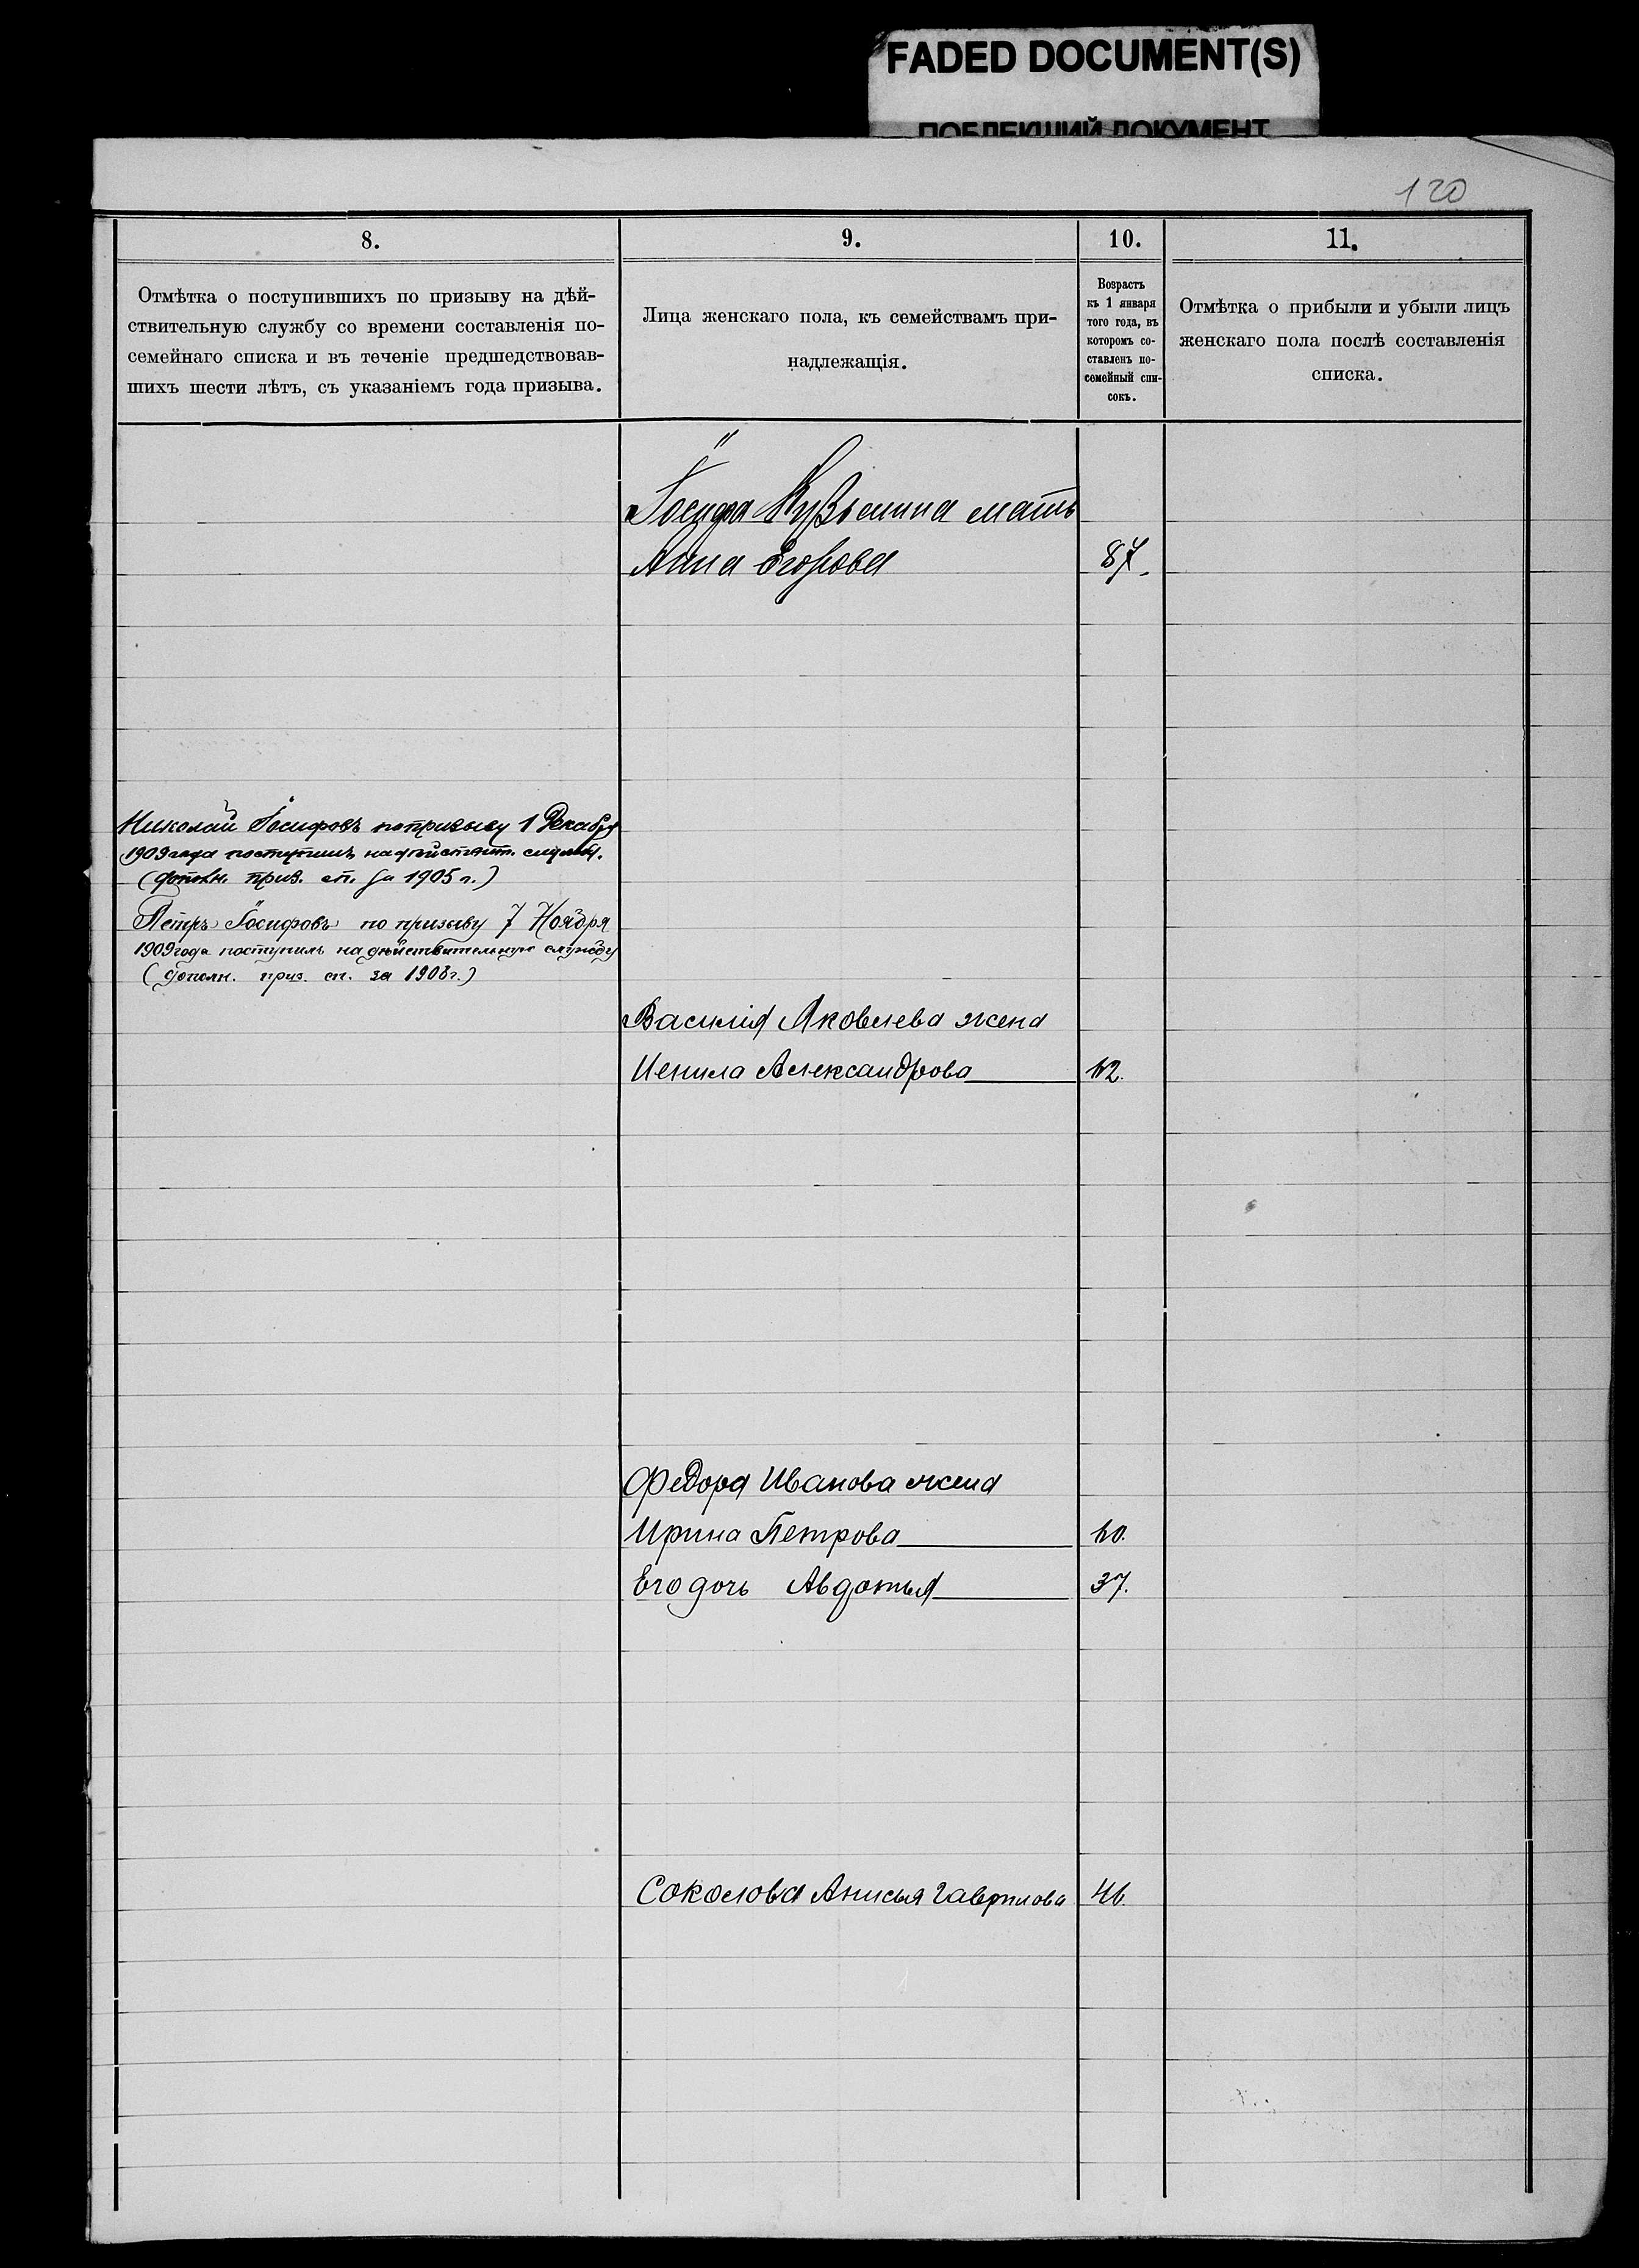 FADED DOCUMENT(S)
ПОБЛЕКШИЙ ДОКУМЕНТ
120
8.
9.
10.
11.
Отмѣтка о поступившихъ по призыву на дѣй-
ствительную службу со времени составленія по-
семейнаго списка и въ теченіе предшедствовав-
шихъ шести лѣтъ, съ указаніемъ года призыва.
Лица женскаго пола, къ семействамъ при-
надлежащія.
Возрастъ
къ 1 января
того года, въ
которомъ со-
ставленъ по-
семейный спи-
сокъ.
Отмѣтка о прибыли и убыли лицъ
женскаго пола послѣ составленія
списка.
Іосифа Кузьмина мать
Анна Егорова 87.
Николай Іосифовъ по призыву 1 Декабря
1909 года поступилъ на дѣйствит. службу.
(дополн. приз. сп. за 1905 г.)
Петръ Іосифовъ по призыву 7 Ноября
1909 года поступилъ на дѣйствительную службу
(дополн. приз. сп. за 1908 г.)
Василія Яковлева жена
Ненила Александрова 62.
Федора Иванова жена
Ирина Петрова 60.
Его дочь Авдотья 37.
Соколова Анисья Гаврилова 46.